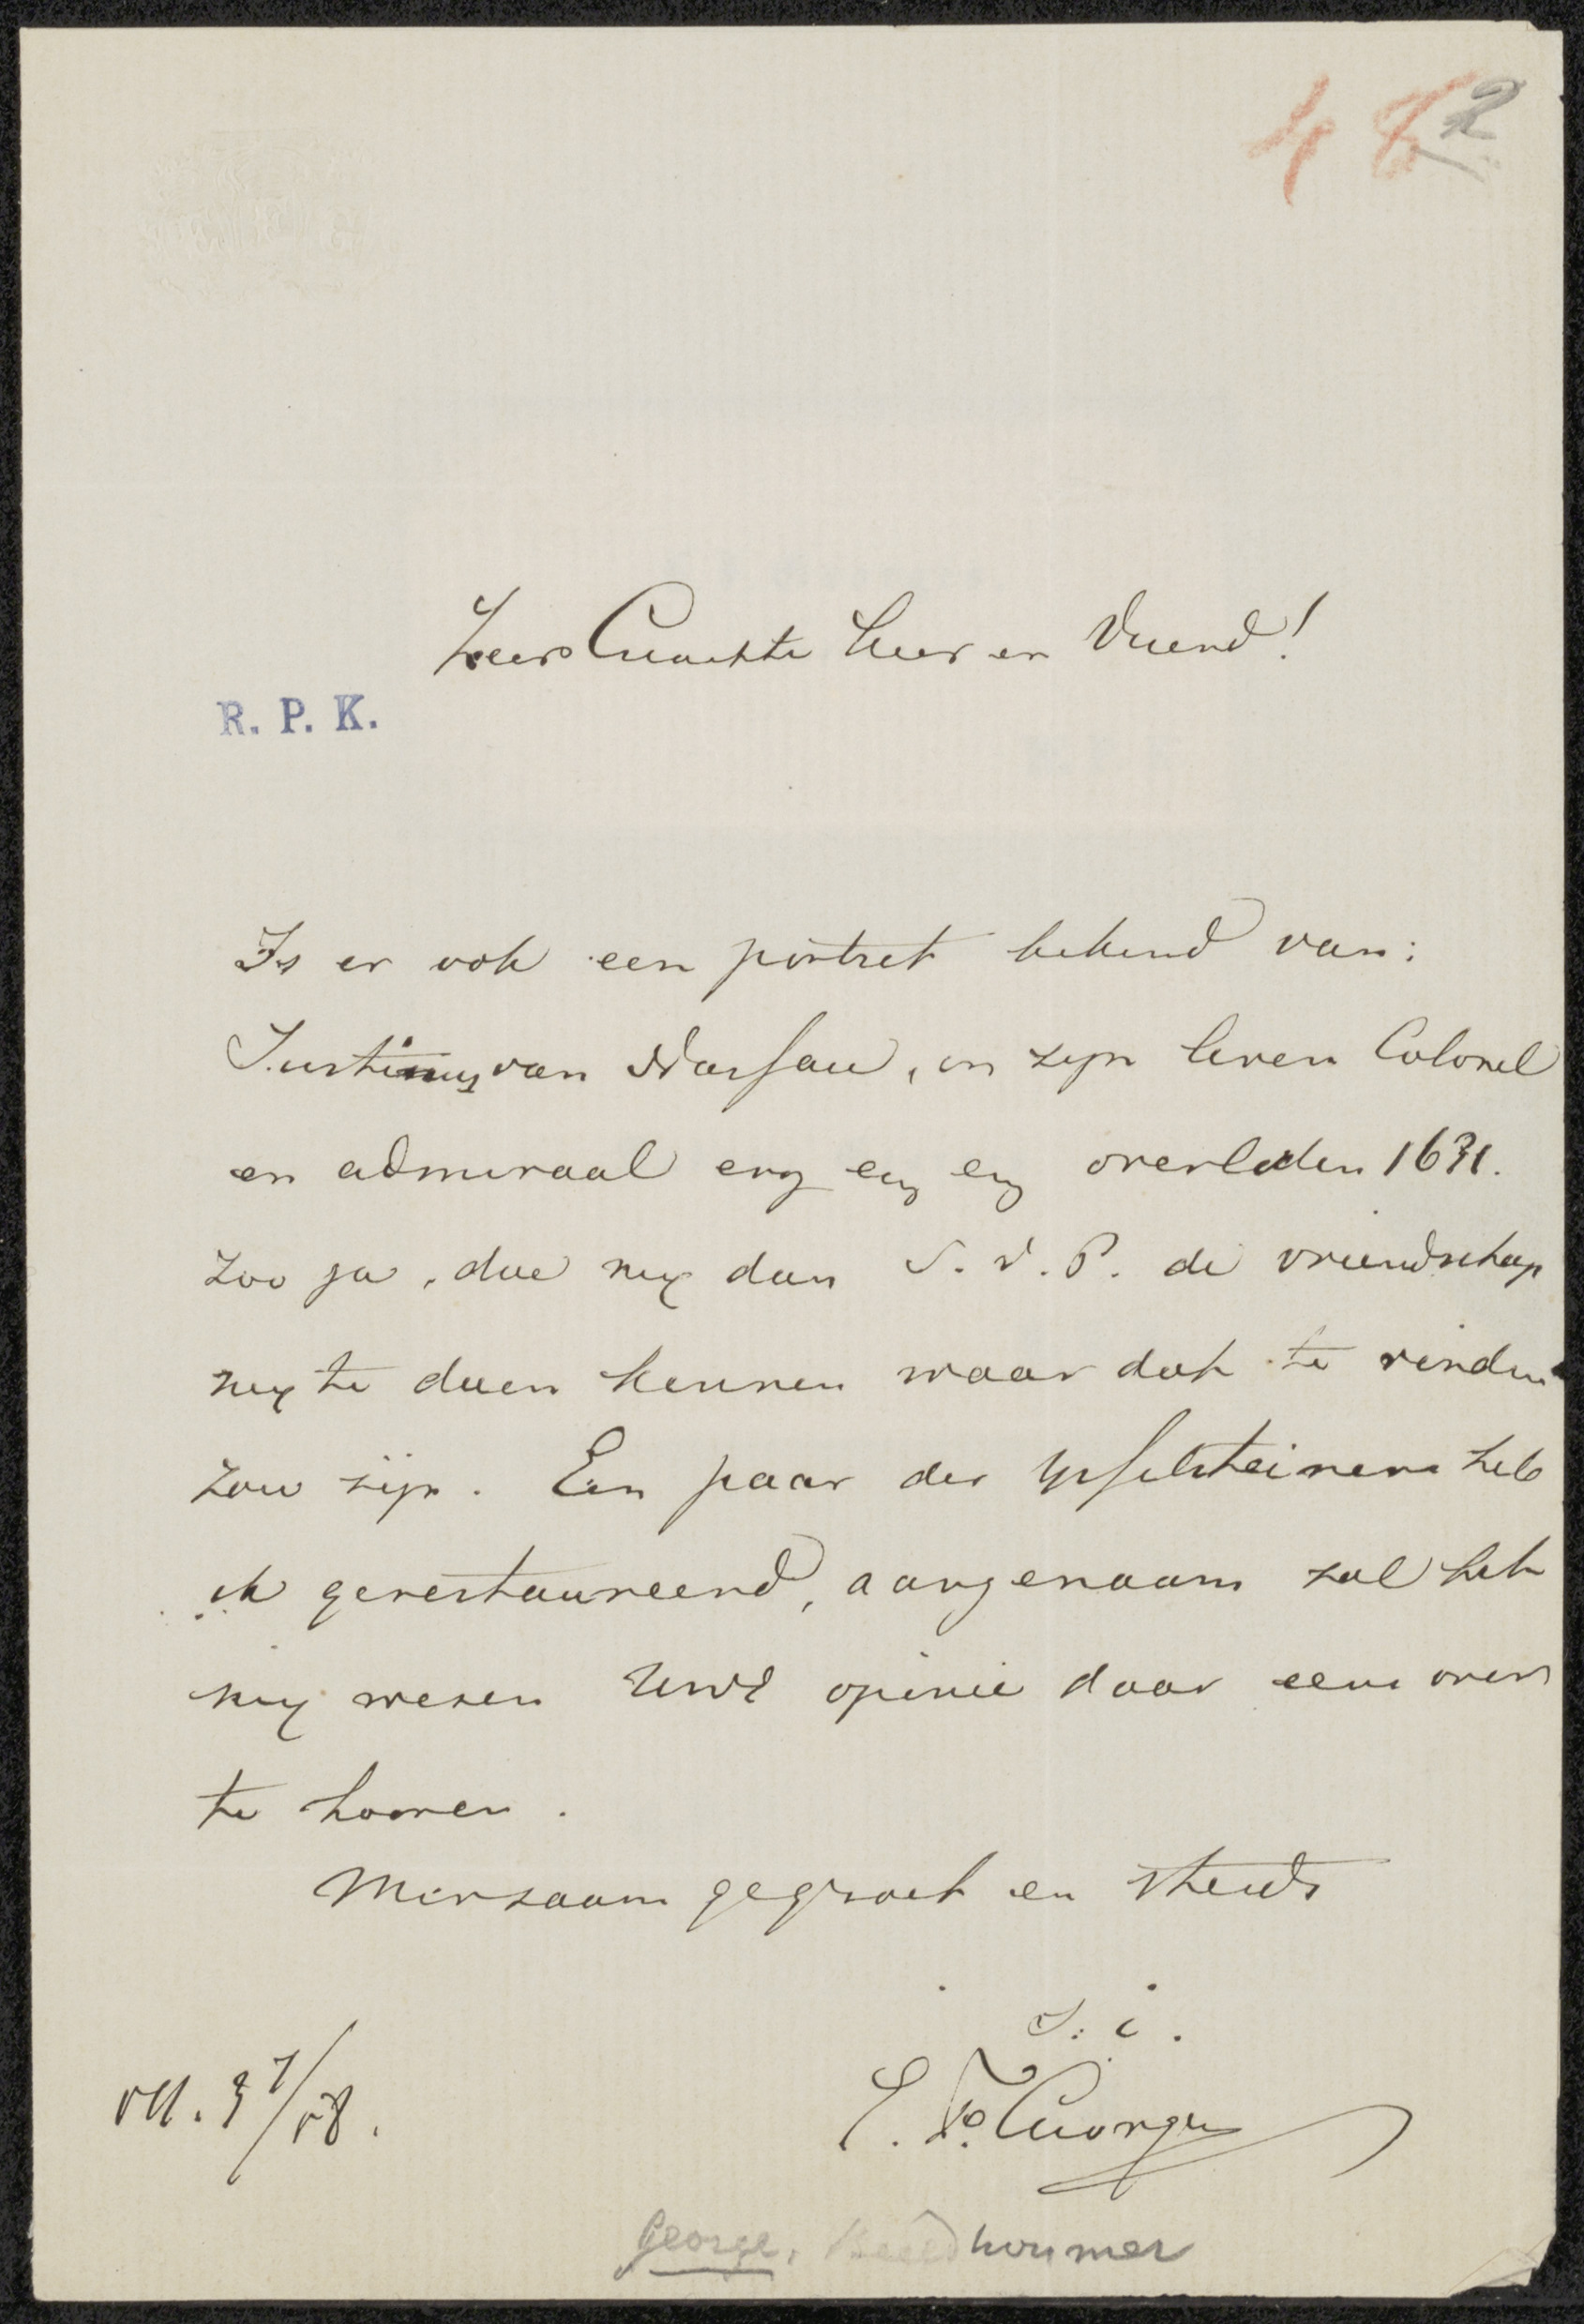 482
Zeer Geachte Heer en Vriend!
R. P. K.
Is er ook een portret bekend van:
Justinus van Nassau, in zijn leven Colonel
en admiraal enz enz enz overleden 1631.
Zoo ja, doe mij dan S. V. P. de vriendschap
mij te doen kennen waar dat te vinden
zou zijn. Een paar der Ysselsteiners heb
ik gerestaureerd, aangenaam zal het
mij wezen UwE opinie daar eens over
te hooren.
Minzaam gegroet en steeds
t. i.
E. F. George
Ktt. 3 7/58.
George, Beeldhouwer